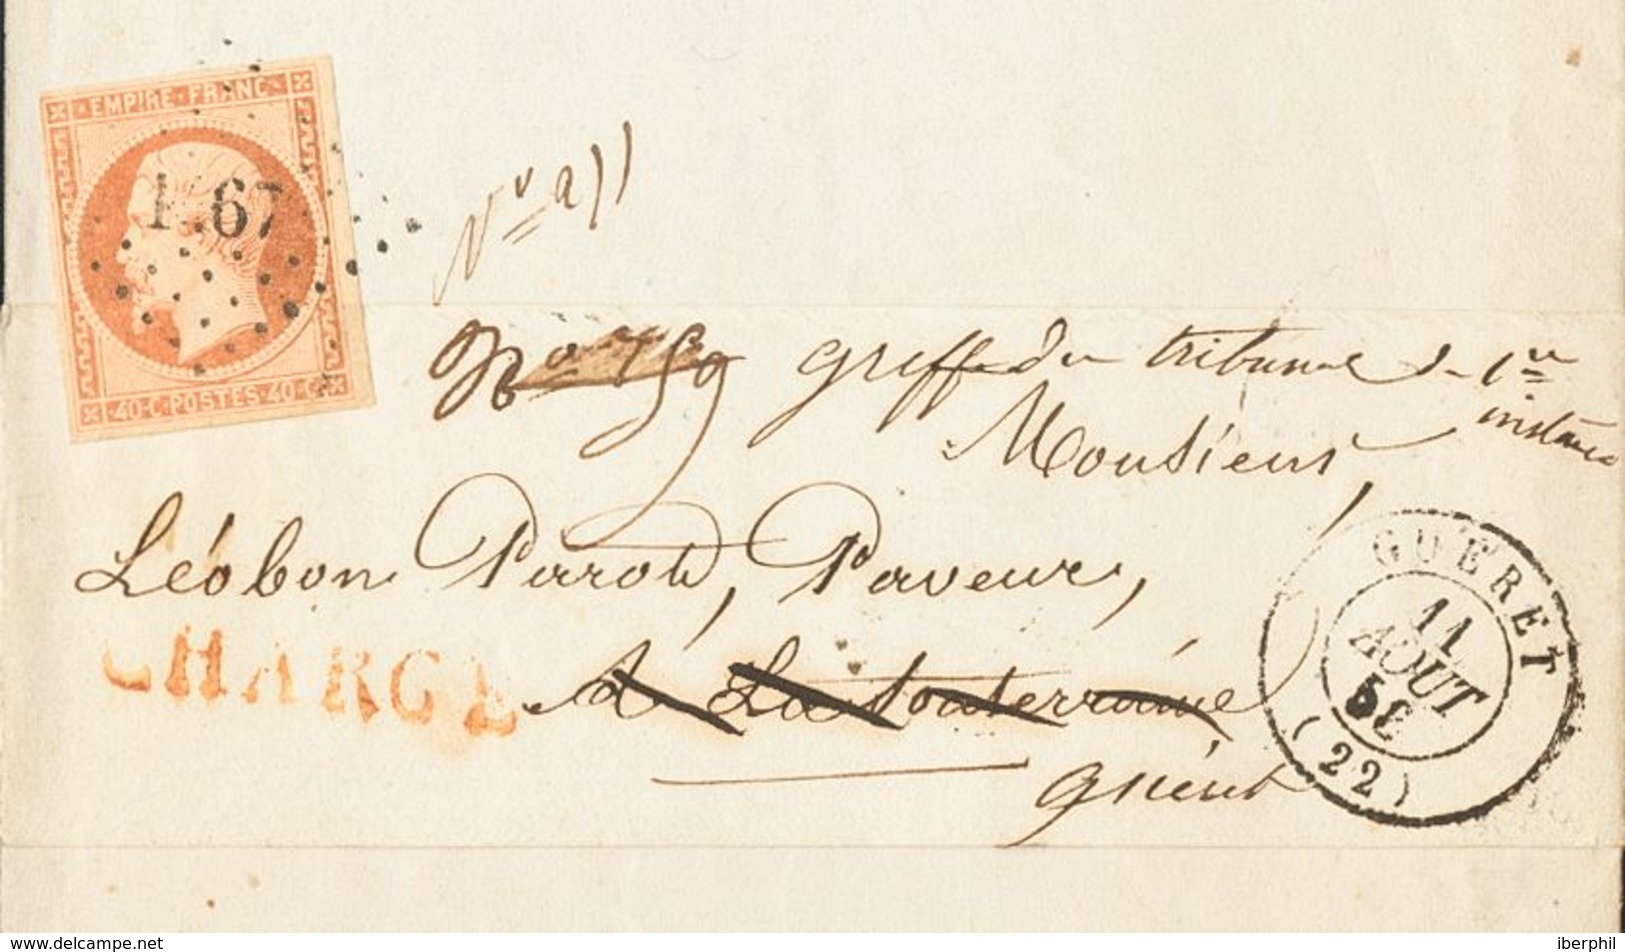 EMPIRE FRANC
67
40·C·POSTES·40·C
No 759 greffe du tribunal de 1re
instance
Monsieur,
Léobon Parot, Paveur,
CHARGE
à La Souterraine
guéret
GUÉRET
11
AOUT
58
(22)
www.delcampe.net
iberphil